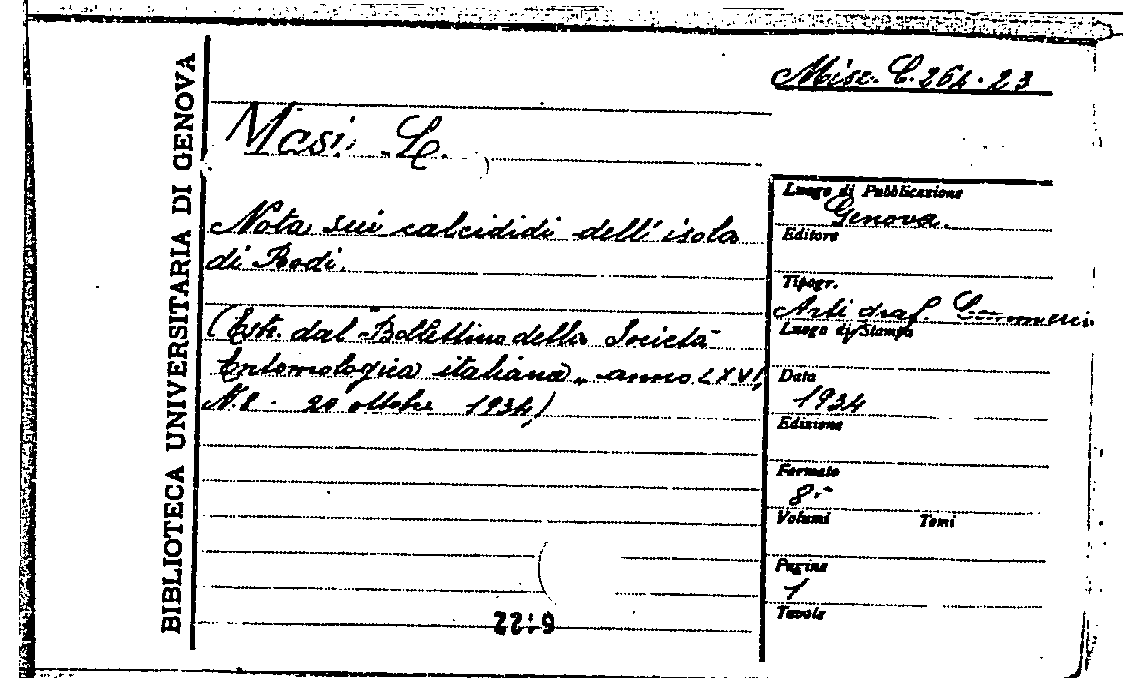 BIBLIOTECA UNIVERSITARIA DI GENOVA
Misc. C. 264. 23
Masi, L.
Nota sui calcididi dell'isola
di Rodi.
(Estr. dal "Bollettino della Società
Entomologica italiana„ anno LXVI,
N. 8 - 20 ottobre 1934)
Luogo di Pubblicazione
Genova.
Editore
Tipogr.
Arti graf. Commerci
Luogo di Stampa
Data
1934
Edizione
Formato
8.-
Volumi Tomi
Pagine
1
Tavole